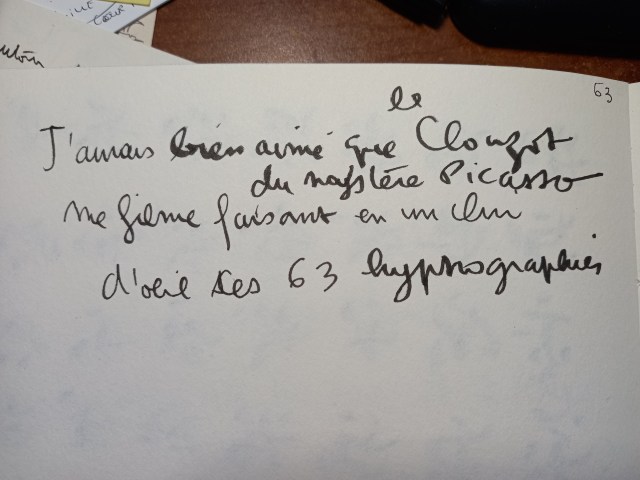 63
le
J'aurais bien aimé que Clouzot
du mystère Picasso
me filme faisant en un clin
d'œil ces 63 hypnographies